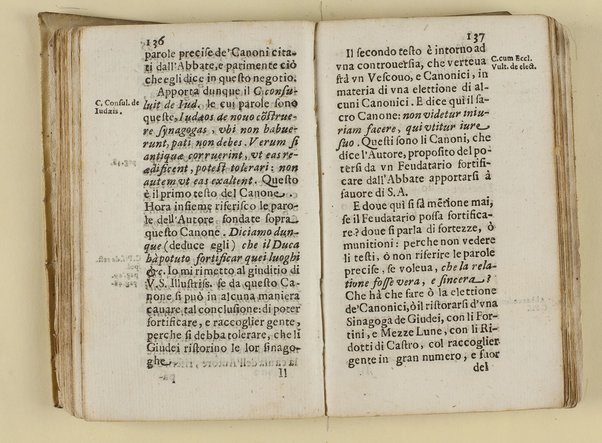 136
parole precise de'Canoni cita-
ti dall'Abbate, e patimente ciò
che egli dice in questo negotio.
Apporta dunque il C. consu-
C. Consul. de
Iudæis.
luit de Iud. le cui parole sono
queste, Iudæos de nouo cōstrue-
re synagogas, vbi non habue-
runt, pati non debes. Verum si
antiquæ corruerint, vt eas re-
ædificent, potest tolerari: non
autem vt eas exaltent. Questo
è il primo testo del Canone.
Hora insieme riferisco le paro-
le dell'Autore fondate sopra
questo Canone. Diciamo dun-
que (deduce egli) che il Duca
ha potuto fortificar quei luoghi
&c. Io mi rimetto al giuditio di
V.S. Illustriss. se da questo Ca-
none si può in alcuna maniera
cauare tal conclusione: di poter
fortificare, e raccoglier gente,
perche si debba tolerare, che li
Giudei ristorino le lor sinago-
ghe.
Il
137
Il secondo testo è intorno ad
C. cum Eccl.
Vult. de elect.
vna controuersia, che verteua
frà vn Vescouo, e Canonici, in
materia di vna elettione di al-
cuni Canonici. E dice qui il sa-
cro Canone: non videtur iniu-
riam facere, qui vtitur iure
suo. Questi sono li Canoni, che
dice l'Autore, proposito del po-
tersi da vn Feudatario fortifi-
care dall'Abbate apportarsi à
fauore di S.A.
E doue qui si fà mētione mai,
se il Feudatario possa fortifica-
re? doue si parla di fortezze, ò
munitioni: perche non vedere
li testi, ò non riferire le parole
precise, se voleua, che la rela-
tione fosse vera, e sincera?
Che hà che fare ò la elettione
de'Canonici, ò il ristorarsi d'vna
Sinagoga de Giudei, con li For-
tini, e Mezze Lune, con li Ri-
dotti di Castro, col raccoglier
gente in gran numero, e fuor
del